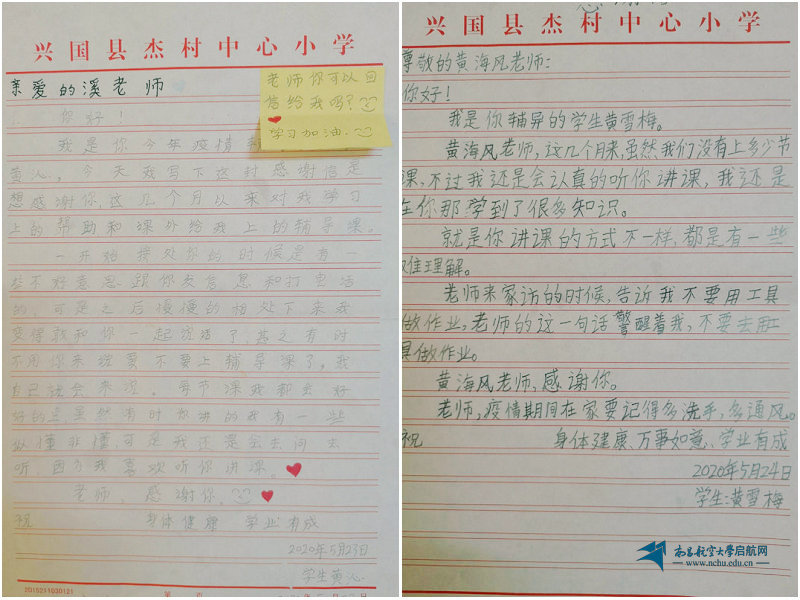 兴国县杰村中心小学
亲爱的溪老师
老师你可以回
信给我吗？
学习加油
你好！
我是你今年疫情
黄沁。今天我写下这封感谢信是
想感谢你这几个月以来对我学习
上的帮助和课外给我上的辅导课。
一开始接处你的时候是有一
些不好意思跟你发信息和打电话
的，可是之后慢慢的相处下来我
变得敢和你一起说话了，甚之有时
不用你来说要不要上辅导课了，我
自己就会来说。每节课我都会好
好的且虽然有时你讲的我有一些
似懂非懂，可是我还是会去问去
听，因为我喜欢听你讲课。
老师，感谢你
祝 身体健康 学业有成
2020年5月23日
学生黄沁
2015211030121
第 页
感谢信
兴国县杰村中心小学
尊敬的黄海风老师：
你好！
我是你辅异的学生黄雪梅。
黄海风老师，这几个月来，虽然我们没有上多少节
课，不过我还是会认真的听你讲课，我还是
在你那学到了很多知识。
就是你讲课的方式不一样，都是有一些
难理解。
老师来家访的时候，告诉我不要用工具
做作业，老师的这一句话警醒着我，不要去用工
具做作业。
黄海风老师，感谢你。
老师，疫情期间在家要记得多洗手，多通风。
祝 身体健康、万事如意、学业有成
2020年5月24日
学生：黄雪梅
南昌航空大学启航网
www.nchu.edu.cn